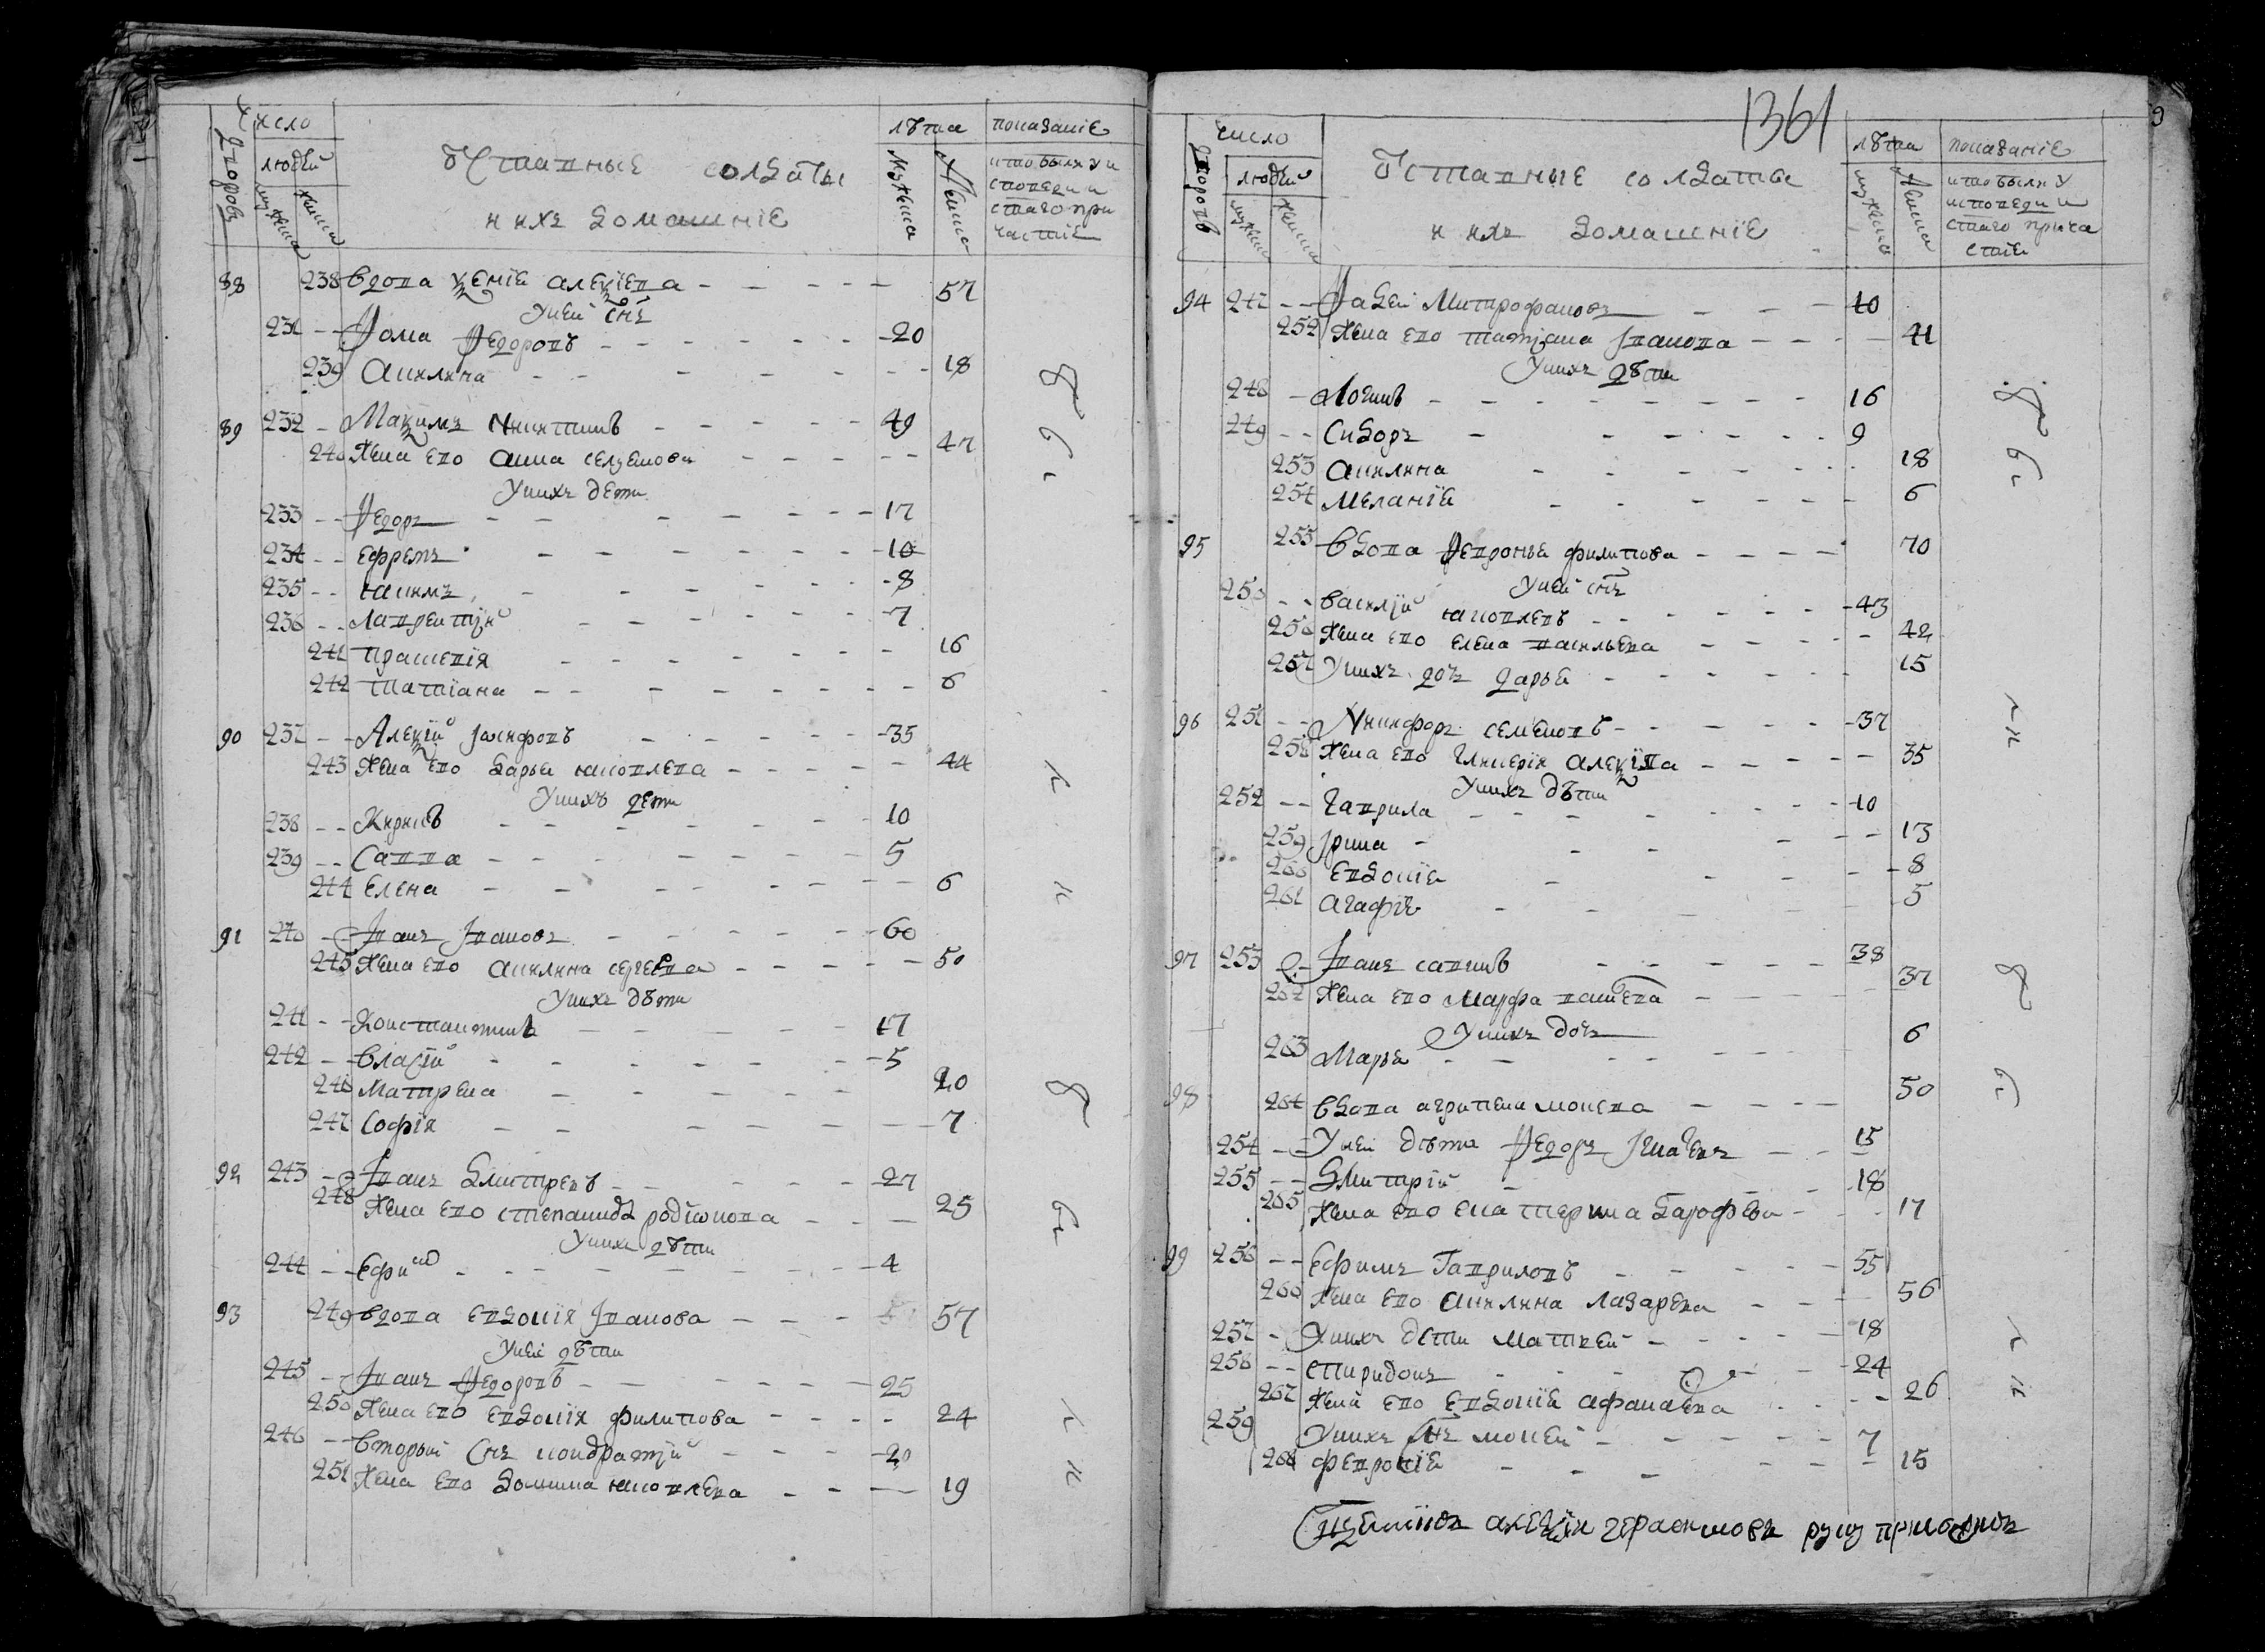 число
дворовъ
людей
мужеска
женска
Отставные солдаты
и ихъ домашнїе
лѣта
мужеска
женска
показанїе
кто былъ у и
споведи и
стаго при
частїе
88 238 вдова ѯенїе алеѯїева 57
У ней снъ
231 Ѳома Ѳедоровъ 20
239 Акилина 18
89 232 Маѯимъ Никитинъ 49
240 Жена ево анна 47
У нихъ дети
233 Ѳедоръ 17
234 Ефремъ 10
235 Иакимъ 8
236 Лаврентїи 7
241 Прасковїя 16
242 Татїана 6
90 237 Алеѯїй 35
243 Жена ево дарья иаковлева 44
У нихъ дети
238 Кирикъ 10
239 Савва 5
244 Елена 6
91 240 Іванъ Івановъ 60
245 Жена ево акилина сергеева 50
У нихъ дѣти
241 Константинъ 17
242 Власїй 5
246 Матрена 20
247 Софїя 7
92 243 Іванъ Дмитреевъ 27
248 Жена ево степанида родїонова 25
У нихъ дѣти
244 Ефим 4
93 249 вдова евдокїя Іванова 57
У ней дѣти
245 Іванъ Ѳедоровъ 25
250 Жена ево евдокїя филипова 24
246 Вторый снъ кондратїй 20
251 Жена ево домина иаковлева 19
1361
число
дворовъ
людей
мужеска
женска
Отставные солдаты
и ихъ домашнїе
лѣта
мужеска
женска
показанїе
кто былъ у
исповеди и
стаго прича
стїе
94 247 Ѳадей Митрофановъ 40
252 Жена ево татїана Іванова 41
У нихъ дѣти
248 Логинъ 16
249 Сидоръ 9
253 Акилина 18
254 Меланїе 6
95 255 Вдова Ѳевронья филипова 70
У ней снъ
250 василїй иаковлевъ 43
256 Жена ево елена васильева 42
257 У нихъ дочь дарья 15
96 251 Никифоръ семеновъ 37
258 Жена ево гликерїя алеѯїева 35
У нихъ дѣти
252 Гаврила 10
259 Ірина 13
260 Евдокїе 8
261 агафїе 5
97 253 Іванъ савинъ 38
262 Жена ево Марфа 37
У нихъ дочь
263 Марья 6
98 264 Вдова агрипена мокеева 50
254 У ней дѣти Ѳедоръ Ігнатевъ 15
255 Дмитрїй 18
265 Жена ево екатерина 17
99 256 Ефимъ Гавриловъ 55
266 Жена ево акилина лазарева 56
257 У нихъ дети Матвей 18
258 Спиридонъ 24
267 Жена ево евдокїе афанасева 26
259 У нихъ снъ мокей 7
268 февронїе 15
Сщенникъ алеѯїи герасимовъ руку приложилъ